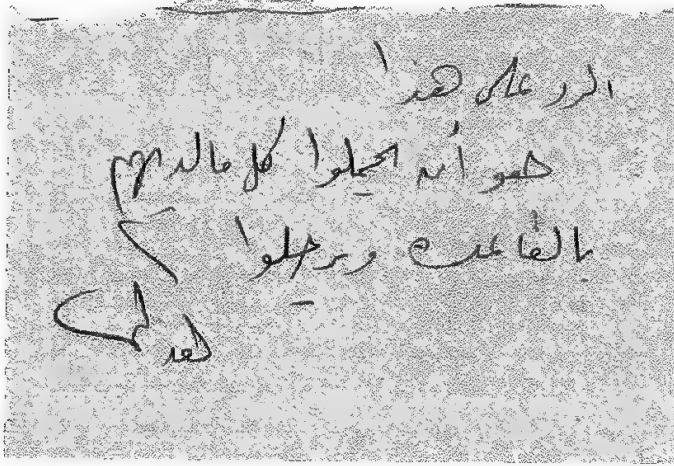 الرد على هذا
هو أن يحملوا كل مالديهم
بالقاعدة ويرحلوا